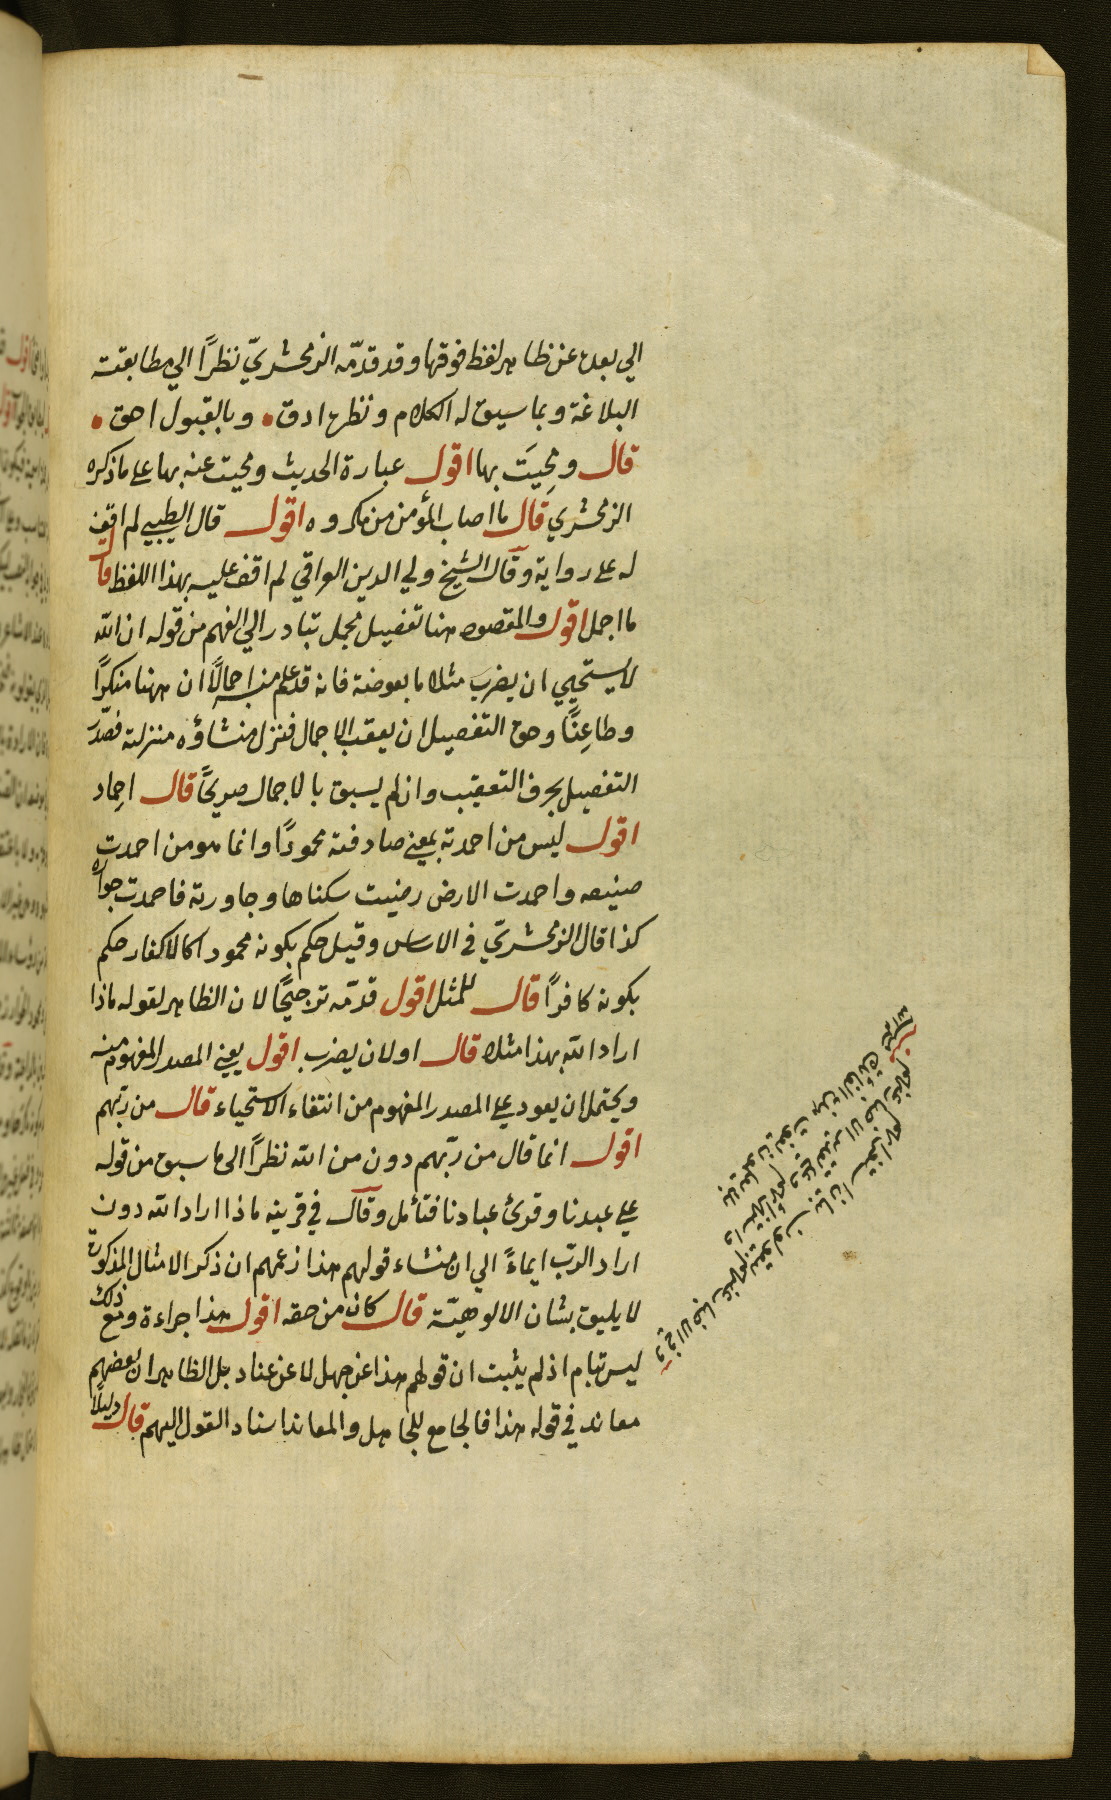 الي بعده عن ظاهر لفظ فوقها وقد قدّمه الزمخشريّ نظرًا الي مطابقته
البلاغة وبما سيق له الكلام ونظره ادق وبالقبول احق
قال ومحِيَت بها اقول عبارة الحديث ومحيت عنه بها على ما ذكره
الزمخشري قال ما اصاب المؤمن من مكروه اقول قال الطيبي لم اقف
له على رواية وقال الشيخ ولي الدين العراقي لم اقف عليه بهذا اللفظ قال
ما اجمل اقول والمقصود هنا تفصيل مجمل تبادر الي الفهم من قوله ان الله
لا يستحيي ان يضرب مثلا ما بعوضة فانه قد علم منه اجمالًا ان ههنا منكرًا
وطاعِنًا وحق التفصيل ان يعقب الاجمال فنزل منشاؤه منزلته فصدّر
التفصيل بحرف التعقيب وان لم يسبق بالاجمال صريحًا قال احِماد
اقول ليس من احمدته بمعني صادفته محمودًا وانما هو من احمدت
صنيعه واحمدت الارض رضيت سكناها وجاورته فاحمدت جواره
كذا قال الزمخشريّ في الاساس وقيل حكم بكونه محمودا كالاكفار حكم
بكونه كافرًا قال للمثل اقول قدّمه ترجيحًا لان الظاهر لقوله ماذا
اراد الله بهذا مثلا قال او لان يضرب اقول يعني المصدر المفهوم منه
ويحتمل ان يعود علي المصدر المفهوم من انتفاء الاستحياء قال من ربّهم
اقول انما قال من ربّهم دون من الله نظرًا الى ما سبق من قوله
علي عبدنا وقرئ عبادنا فتأمل وقال في قرينه ماذا اراد الله دون
اراد الربّ ايماءً الي ان منشاء قولهم هذا زعمهم ان ذكر الامثال المذكورة
لا يليق بشان الالوهيّة قال كان من حقه اقول هذا جراءة ومنع ذلك
ليس بتام اذ لم يثبت ان قولهم هذا عن جهل لا عن عناد بل الظاهر ان بعضهم
معاند في قوله هذا فالجامع للجاهل والمعاند اسناد القول اليهم قال دليلًا